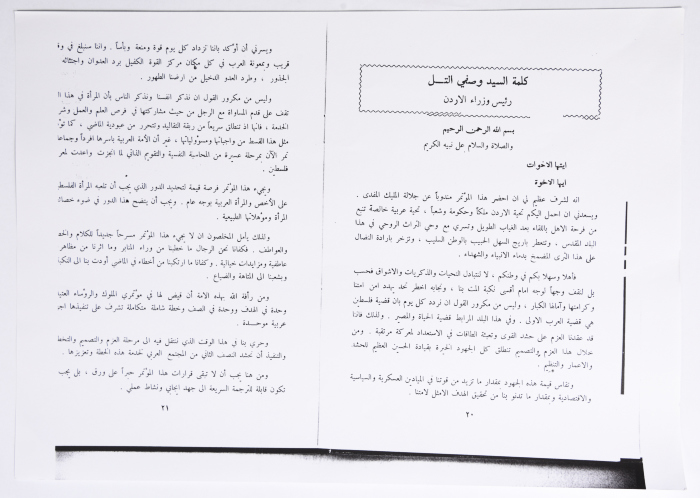 كلمة السيد وصفي التــــل
رئيس وزراء الاردن
بسم الله الرحمن الرحيم
والصلاة والسلام على نبيه الكريم
ايتها الاخوات
ايها الاخوة
انه لشرف عظيم لي ان احضر هذا المؤتمر مندوباً عن جلالة المليك المفدى .
ويسعدني ان احمل اليكم تحية الاردن ملكاً وحكومة وشعباً ، تحية عربية خالصة تنبع
من فرحة الاهل باللقاء بعد الغياب الطويل وتسري مع وحي التراث الروحي في هذا
البلد المقدس . وتتعطر باريج السهل الحبيب بالوطن السليب ، وتزخر بارادة النضال
على هذا الثرى المضمخ بدماء الانبياء والشهداء .
فأهلا وسهلا بكم في وطنكم ، لا لنتبادل التحيات والذكريات والاشواق فحسب
بل لنقف وجهاً لوجه امام أقسى نكبة المت بنا ، وتجابه اخطر تحد يهدد امن امتنا
وكرامتها وآمالها الكبار . وليس من مكرور القول ان نردد كل يوم بان قضية فلسطين
هي قضية العرب الاولى . وفي هذا البلد المرابط قضية الحياة والمصير . ولذلك فاننا
قد عقدنا العزم على حشد القوى وتعبئة الطاقات في الاستعداد لمعركة مرتقبة . ومن
خلال هذا العزم والتصميم تنطلق كل الجهود الخيرة بقيادة الحسين العظيم للحشد
والاعمار والتنظيم .
وتقاس قيمة هذه الجهود بمقدار ما تزيد من قوتنا في الميادين العسكرية والسياسية
والاقتصادية وبمقدار ما تدنو بنا من تحقيق الهدف الامثل لامتنا .
٢٠
ويسرني أن أؤكد باننا نزداد كل يوم قوة ومنعة وبأساً . واننا سنبلغ في
قريب وبمعونة العرب في كل مكان مركز القوة الكفيل برد العدوان واجتثاثه
الجذور ، وطرد العدو الدخيل من ارضنا الطهور .
وليس من مكرور القول ان نذكر انفسنا ونذكر الناس بأن المرأة في هذا
تقف على قدم المساواة مع الرجل من حيث مشاركتها في فرص العلم والعمل
الخدمة ، فانها اذ تنطلق سريعاً من ربقة التقاليد وتتحرر من عبودية الماضي ، كما
مثل هذا القسط من واجباتها ومسؤولياتها ، غير أن الأمة العربية باسرها افرداً وجماعات
تمر الآن بمرحلة عسيرة من المحاسبة النفسية والتقويم الذاتي لما انجزت واعدت
فلسطين .
ويجيء هذا المؤتمر فرصة قيمة لتحديد الدور الذي يجب أن تلعبه المرأة
على الأخص والمرأة العربية بوجه عام . ويجب أن يتضح هذا الدور في ضوء
المرأة ومؤهلاتها الطبيعية .
ولذلك يأمل المخلصون ان لا يجيء هذا المؤتمر مسرحاً جديداً للكلام
والعواطف . فكفانا نحن الرجال ما خطبنا من وراء المنابر وما اثرنا من مظاهر
عاطفية ومزايدات خيالية . وكفانا ما ارتكبنا من أخطاء في الماضي أودت بنا الى
وبشعبنا الى المتاهة والضياع .
ومن رأفة الله بهذه الامة أن قيض لها في مؤتمري الملوك والرؤساء
وحدة في الهدف ووحدة في الصف وخطة شاملة متكاملة تشرف على تنفيذها
عربية موحـدة .
وحري بنا في هذا الوقت الذي ننتقل فيه الى مرحلة العزم والتصميم
والتنفيذ أن نحشد النصف الثاني من المجتمع العربي لخدمة هذه الخطة وتعزيزها .
ومن هنا يجب أن لا تبقى قرارات هذا المؤتمر حبراً على ورق ، بل يجب
تكون قابلة للترجمة السريعة الى جهد ايجابي ونشاط عملي .
٢١